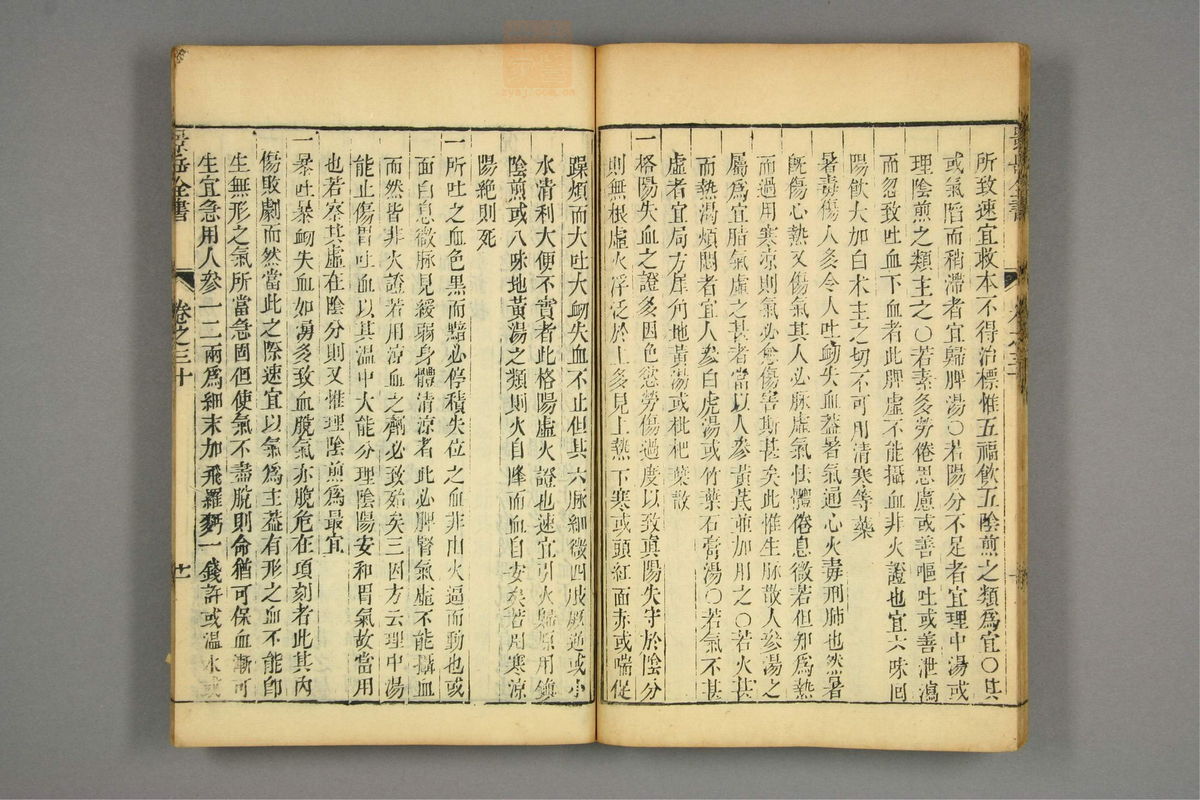 所致速宜救本不得治標惟五福飲五陰煎之類爲宜○其
或氣陷而稍滯者宜歸脾湯○若陽分不足者宜理中湯或
理陰煎之類主之○若素多勞倦思慮或善嘔吐或善泄瀉
而忽致吐血下血者此脾虛不能攝血非火證也宜六味回
陽飲大加白术主之切不可用清寒等藥
暑毒傷人多令人吐衂失血葢暑氣通心火毒刑肺也然暑
旣傷心熱又傷氣其人必脉虛氣怯體倦息微若但知爲熱
而過用寒凉則氣必愈傷害斯甚矣此惟生脉散人參湯之
屬爲宜脂氣虛之甚者當以人參黃芪並加用之○若火甚
而熱渴煩悶者宜人參白虎湯或竹葉石膏湯○若氣不甚
虛者宜局方犀角地黃湯或枇杷葉散
一格陽失血之證多因色慾勞傷過度以致眞陽失守於陰分
則無根虛火浮泛於上多見上熱下寒或頭紅面赤或喘促
躁煩而大吐大衂失血不止但其六脉細微四肢厥逆或小
水清利大便不實者此格陽虛火證也速宜引火歸原用鎮
陰煎或八味地黃湯之類則火自降而血自安矣若用寒凉
陽絶則死
一所吐之血色黑而黯必停積失位之血非由火逼而動也或
面白息微脉見緩弱身體清凉者此必脾腎氣虛不能攝血
而然皆非火證若用凉血之劑必致殆矣三因方云理中湯
能止傷胃吐血以其溫中大能分理陰陽安和胃氣故當用
也若察其虛在陰分則又惟理陰煎爲最宜
一暴吐暴衂失血如湧多致血脫氣亦脫危在項刻者此其內
傷敗劇而然當此之際速宜以氣爲主葢有形之血不能卽
生無形之氣所當急固但使氣不盡脫則命猶可保血漸可
生宜急用人參一二兩爲細末加飛羅麪一錢許或溫水或
景岳全書
卷之三十
廿一
景岳全書